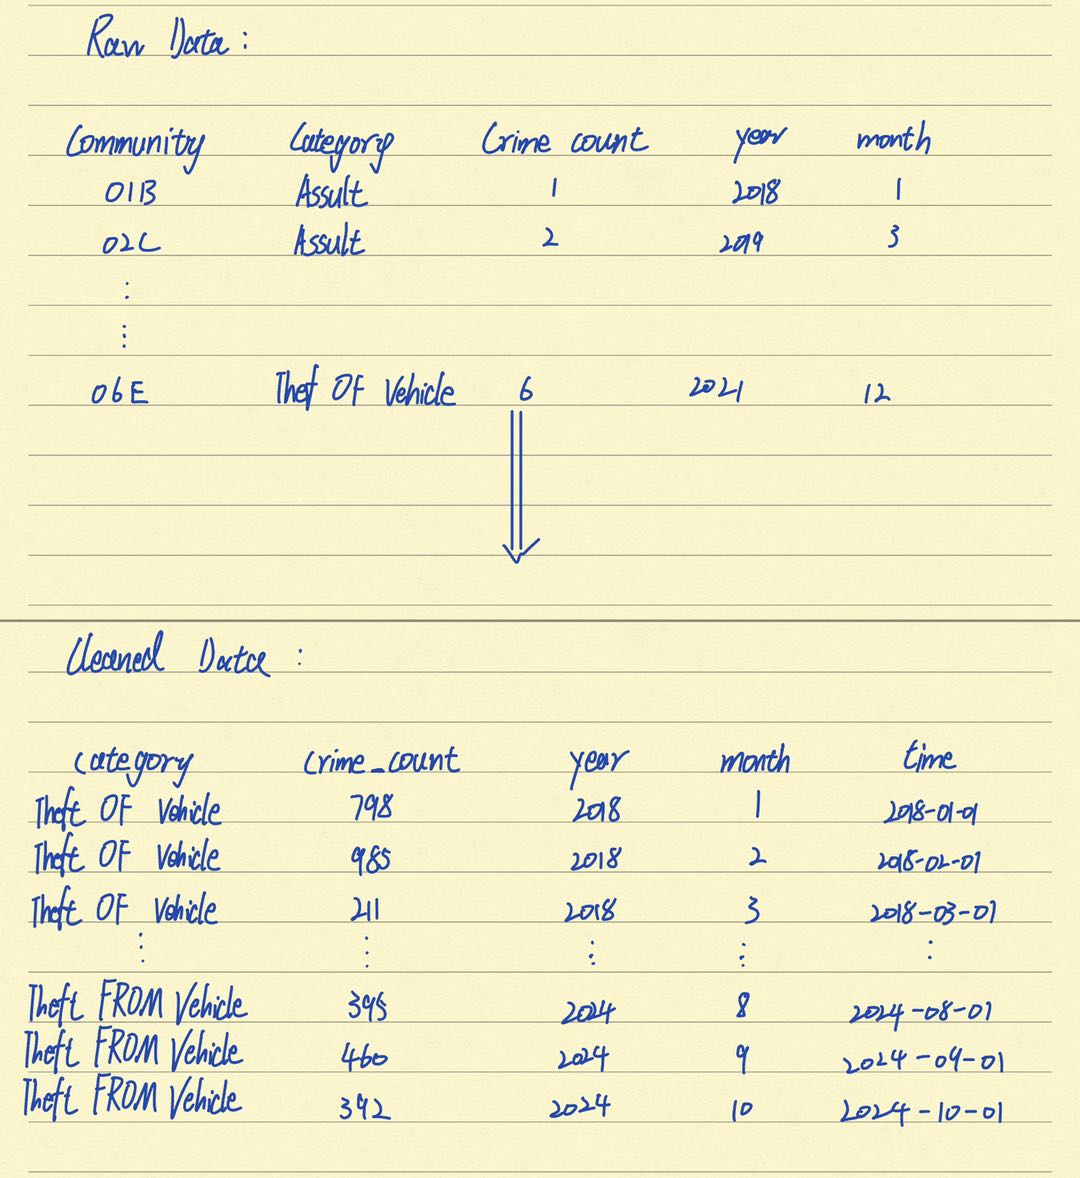 Raw Data :
Community Category Crime count year month
01B Assult 1 2018 1
02C Assult 2 2019 3
06E Thef OF Vehicle 6 2021 12
Cleaned Data :
category crime_count year month time
Theft OF Vehicle 798 2018 1 2018-01-01
Theft OF Vehicle 985 2018 2 2018-02-01
Theft OF Vehicle 211 2018 3 2018-03-01
Theft FROM Vehicle 395 2024 8 2024-08-01
Theft FROM Vehicle 460 2024 9 2024-09-01
Theft FROM Vehicle 392 2024 10 2024-10-01